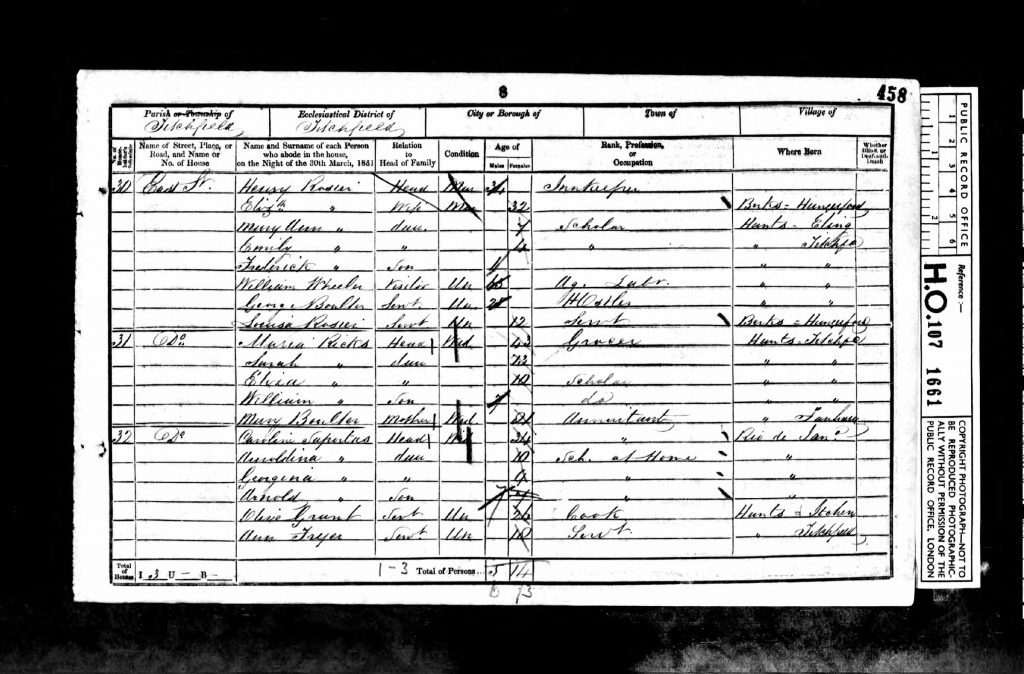 8
458
Parish or Township of
Titchfield
Ecclesiastical District of
Titchfield
City or Borough of
Town of
Village of
No. of House-holder's Schedule
Name of Street, Place, or Road, and Name or No. of House
Name and Surname of each Person who abode in the house, on the Night of the 30th March, 1851
Relation to Head of Family
Condition
Age of
Males Females
Rank, Profession, or Occupation
Where Born
Whether Blind, or Deaf-and-Dumb
30 East St. Henry Head Mar Innkeeper
Elizth " Wife Mar 32 Berks = Hungerford
Mary Ann " dau 7 Scholar Hants - Eling
Emily " " 4 " " Titchfd
Frederick " Son " "
William Wheeler Visitor Un Ag. Labr. " "
George Boulter Servt Un. 28 Hostler " "
Louisa Servt Un 12 Servt Berks = Hungerford
31 Do Maria Ricks Head Wid 42 Grocer Hants - Titchfd
Sarah " dau " "
Eliza " " 10 Scholar " "
William " Son 7 do " "
Mary Boulter Mother Wid. Annuitant " Fareham
32 Do Caroline Head Wid 34 " Rio de Jano
" dau 10 Sch. at Home "
Georgina " " "
Arnold " Son " "
Olive Grant Servt Un Cook Hants = Itchen
Ann Fryer Servt Un Servt " Titchfield
Total of Houses I 3 U - B -
1-3 Total of Persons... 5 14
6 13
PUBLIC RECORD OFFICE
1 2 3 4 5 6
1 2
Reference :-
H.O. 107 1661
COPYRIGHT PHOTOGRAPH—NOT TO BE REPRODUCED PHOTOGRAPHIC-ALLY WITHOUT PERMISSION OF THE PUBLIC RECORD OFFICE, LONDON